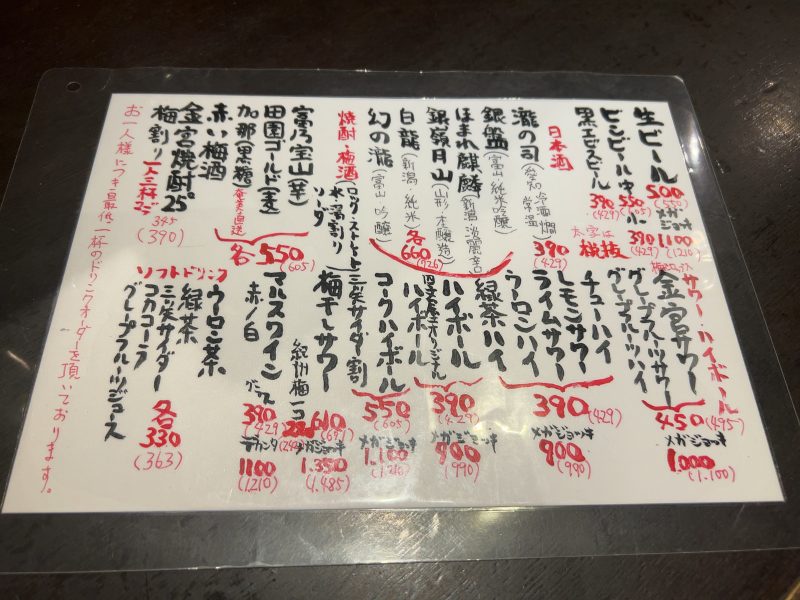 生ビール 500 (550)
メガジョッキ 1100 (1210)
ビンビール・中 550 (605)
小 390 (429)
黒エビスビール 390 (429)
太字は税抜
日本酒
瀧の司 (愛知 冷酒 燗 常温) 390 (429)
銀盤 (富山・純米吟醸)
ほまれ麒麟 (新潟 淡麗辛口)
銀嶺月山 (山形 本醸造)
白龍 (新潟・純米)
幻の瀧 (富山 吟醸)
各660 (726)
焼酎・梅酒
ロック・ストレート
水・湯割り
ソーダ
富乃宝山 (芋)
田園ゴールド (麦)
加那 (黒糖) 奄美直送
赤い梅酒
各550 (605)
金宮焼酎25°
梅割り 一人三杯まで 345 (390)
お一人様につき最低一杯のドリンクオーダーを頂いております。
サワー・ハイボール
金宮サワー
グレープフルーツサワー
グレープフルーツハイ
450 (495)
メガジョッキ 1.000 (1.100)
チューハイ
レモンサワー
ライムサワー
ウーロンハイ
緑茶ハイ
390 (429)
メガジョッキ 900 (990)
ハイボール
ハイボール
390 (429)
メガジョッキ 900 (990)
コークハイボール
三矢サイダー割
550 (605)
メガジョッキ 1.100 (1.210)
梅干しサワー 610 (671)
紀州梅一コ
メガジョッキ 1.350 (1.485)
マルスワイン
赤/白
グラス 390 (429)
デカンタ 1100 (1210)
ソフトドリンク
ウーロン茶
緑茶
三矢サイダー
コカコーラ
グレープフルーツジュース
各330 (363)